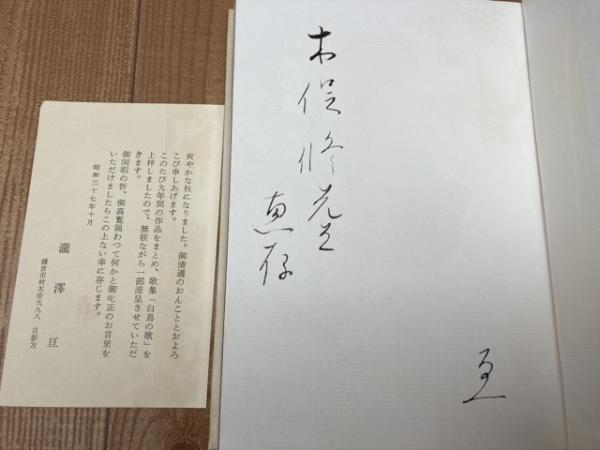 木俣修先生
恵存
亙
爽やかな秋になりました。御清適のおんこととおよろ
こび申しあげます。
このたび九年間の作品をまとめ、歌集「白鳥の歌」を
上梓しましたので、無躾ながら一部進呈させていただ
きます。
御閑暇の折、御高覧賜わつて何かと御叱正のお言葉を
いただけましたらこの上ない幸に存じます。
昭和三十七年十月
瀧澤亘
鎌倉市材木座九九八 日影方